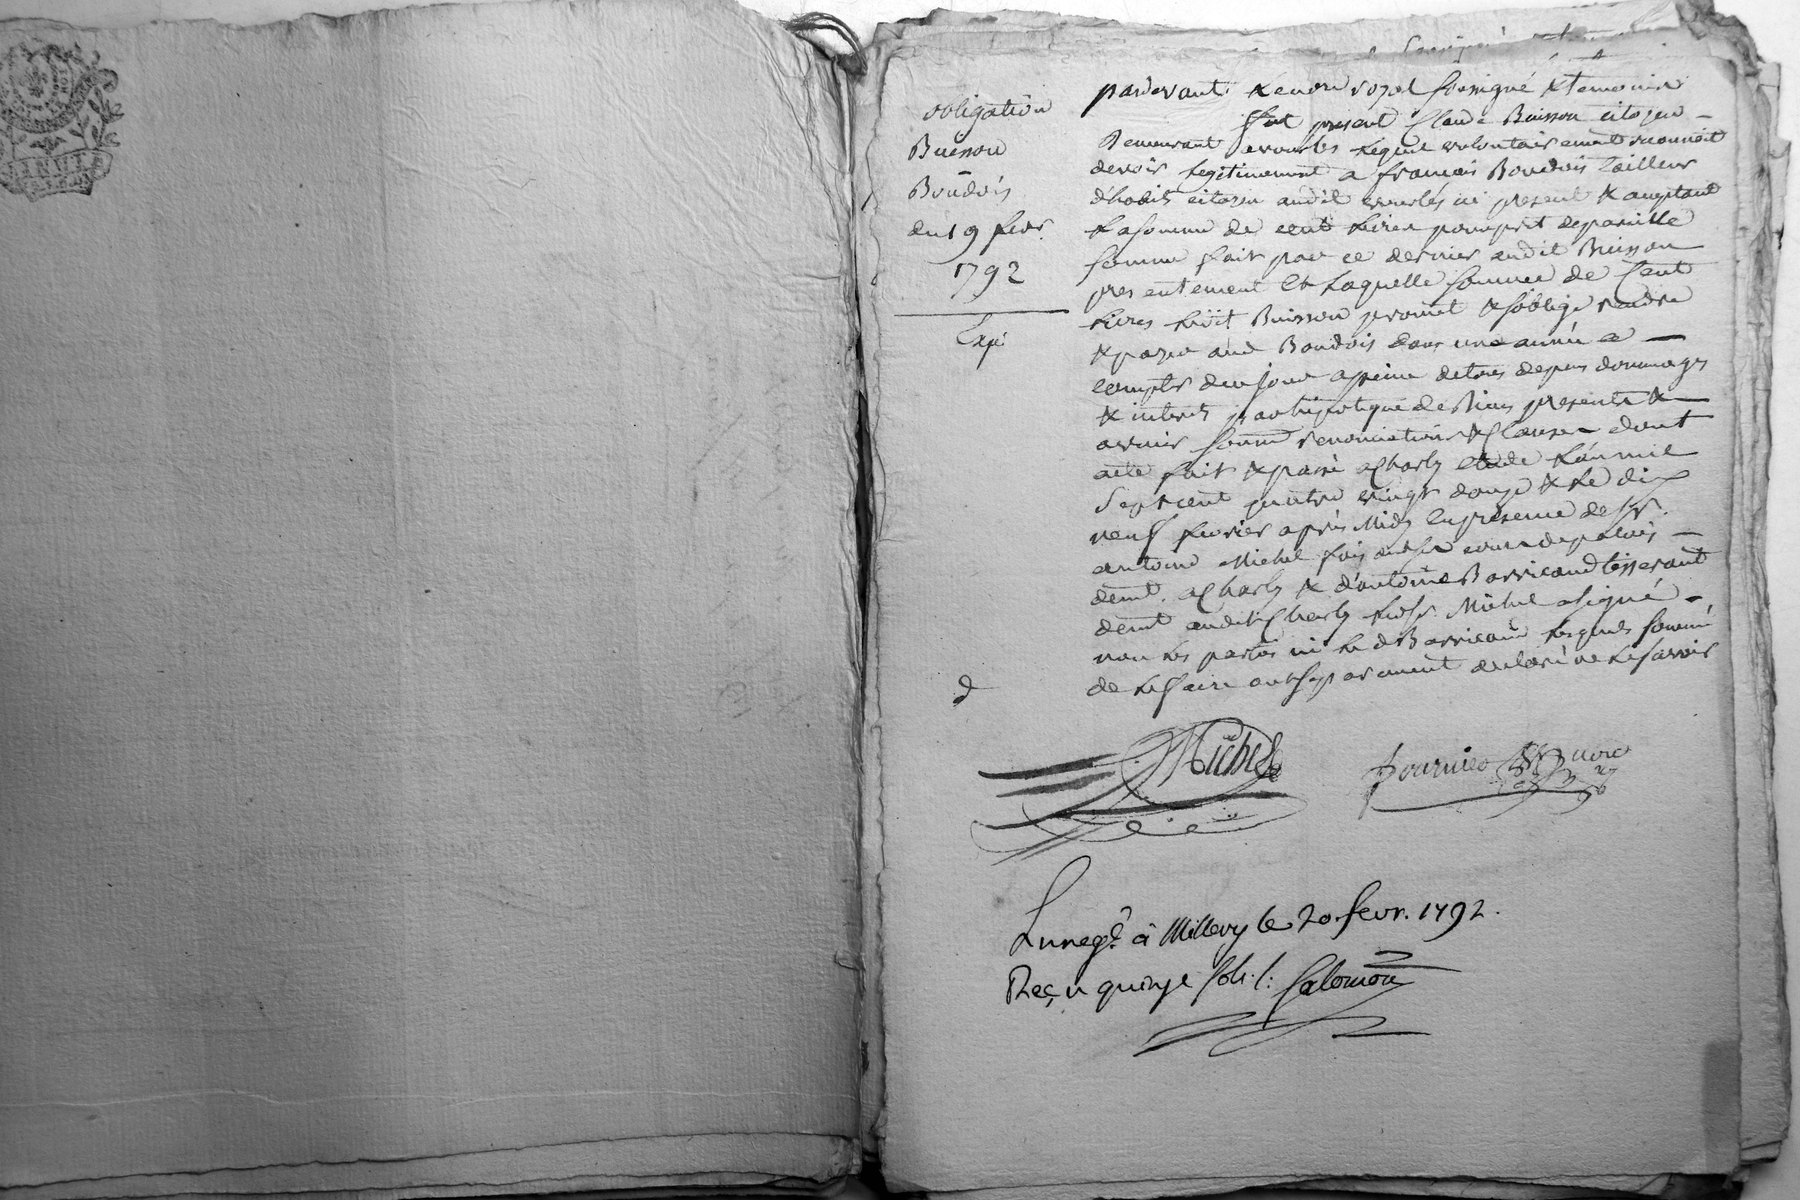 MINUTE
obligation
Buisson
Boudois
du 19 fevr.
1792
Exp.
pardevant le notre royal soussigné & temoins
fut present Claude Buisson citoyen
demeurant a vourles lequel volontairement reconnoit
devoir legitimement a françois Boudois tailleur
d'habits citoyen audit vourles ici present & acceptant
la somme de cent livres pour pret de pareille
somme fait par ce dernier audit Buisson
presentement & laquelle somme de Cent
livres ledit Buisson promet & s'oblige rendre
& payer aud. Boudois dans une année a
compter de ce jour a peine de tous depens dommages
& interets par hipoteque de Biens presents &
avenir soum. renonciations & Clauses dont
acte fait & passé a Charly etude l'an mil
Sept cent quatre vingt douze & le dix
neuf fevrier après Midy En presence de Sr.
antoine Michel
demt. a Charly & d'antoine Barricand tisserant
demt audit Charly led. Sr. Michel a signé
non les parties ni led. Barricand lesquels sommé
de le faire ont separement declaré ne le savoir
Michel
fournier
Enregé. à Millery le 20. fevr. 1792.
Reçu quinze sols. Salomon